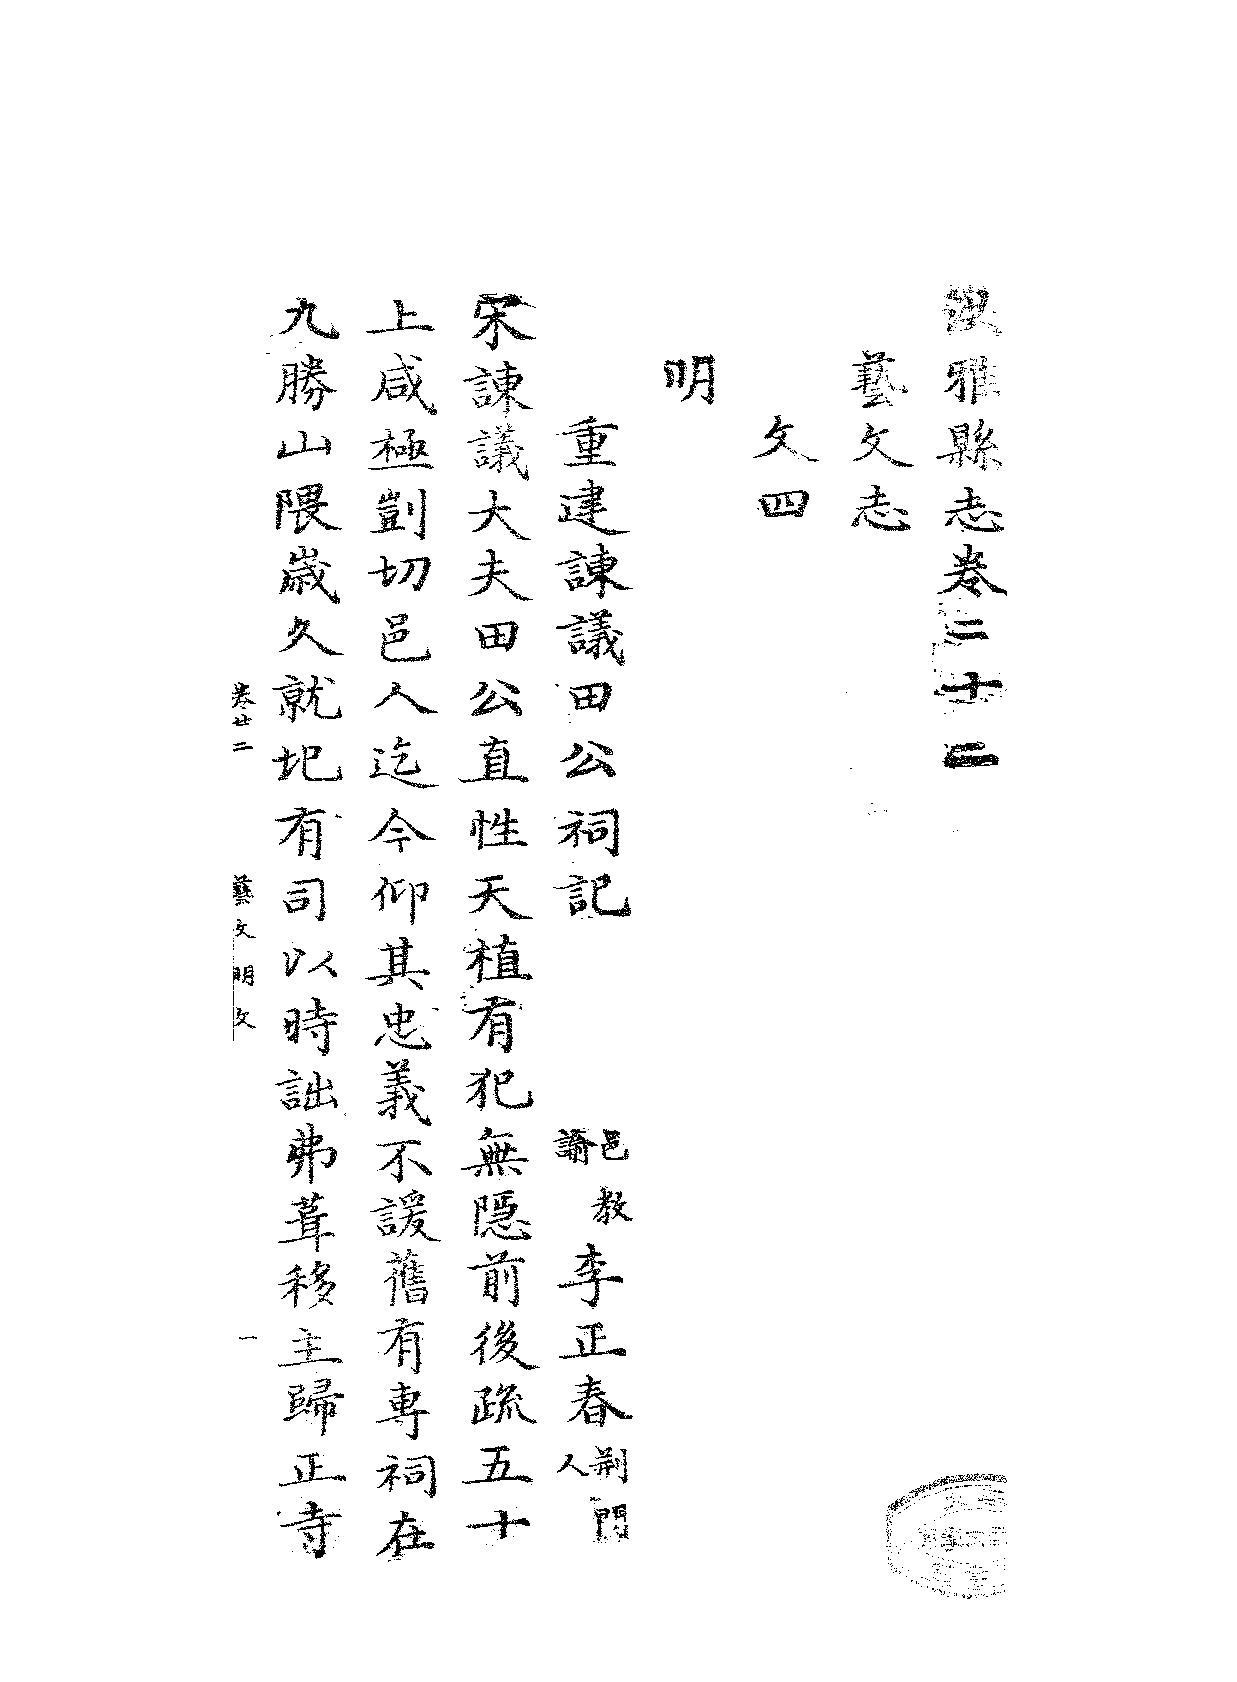 洪雅縣志卷二十二
藝文志
文四
明
重建諫議田公祠記 邑教諭 李正春 荆門人
宋諫議大夫田公直性天植有犯無隠前後疏五十
上咸極剴切邑人迄今仰其忠義不諼舊有專祠在
九勝山隈歲久就圯有司以時詘弗葺移主歸正寺
卷廿二 藝文明文 一